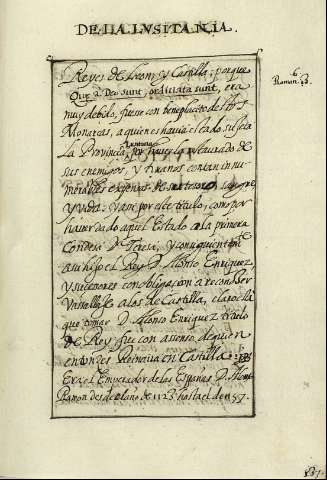 DE LA LVSITANIA.
Reyes de Leon, y Castilla; porque
Quæ à Deo sunt, ordinata sunt, era
muy debido, fuesse con beneplacito de los
Monarcas, a quien es havia estado sujeta
La Provincia, por haverla restaurado de
sus enemigos, y tiranos con tan innu
merables expensas de su tesoro, sangre,
y vida: y assi por este titulo, como por
haver dado aquel Estado a la primera
Condesa D.ª Teresa, y consiguientem.te
a su hijo el Rey D. Alonso Enriquez,
y sucesores con obligacion a reconocer
Vassallaje a los de Castilla, claro està
que tomar D. Alonso Enriquez titulo
de Rey fue con assenso de quien
entonces Reinava en Castilla.
Era el Emperador de las Españas D. Alonso
Ramon desde el año de 1123 hasta el de 1157.
6
Roman. 13.